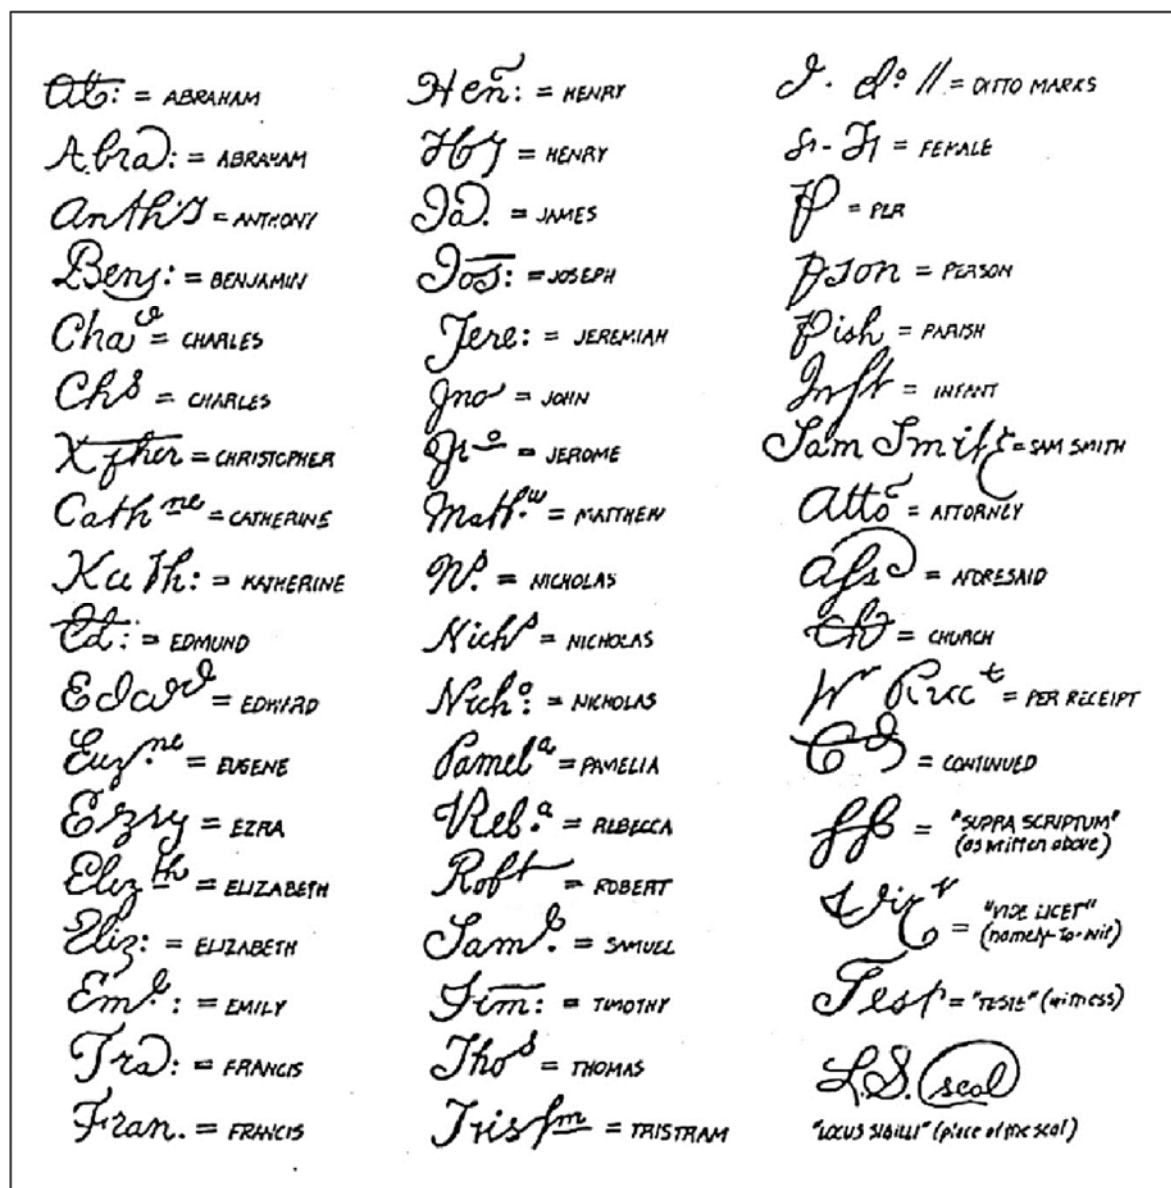 Ab: = ABRAHAM
Abra: = ABRAHAM
Anth'y = ANTHONY
Benj: = BENJAMIN
Chae = CHARLES
Chs = CHARLES
Xpher = CHRISTOPHER
Cathne = CATHERINE
Kath: = KATHERINE
Ed: = EDMUND
Edward = EDWARD
Eug.ne = EUGENE
Ezry = EZRA
Elizth = ELIZABETH
Eliz: = ELIZABETH
Eml: = EMILY
Fra: = FRANCIS
Fran. = FRANCIS
Hen: = HENRY
Hy = HENRY
Ja. = JAMES
Jos: = JOSEPH
Jere: = JEREMIAH
Jno = JOHN
Jro = JEROME
Math.w = MATTHEW
Ns. = NICHOLAS
Nichs = NICHOLAS
Nicho: = NICHOLAS
Pamela = PAMELIA
Reb.a = REBECCA
Robt = ROBERT
Saml. = SAMUEL
Tim: = TIMOTHY
Thos = THOMAS
Tristm = TRISTRAM
J. do // = DITTO MARKS
= FEMALE
P = PER
Pson = PERSON
Pish = PARISH
Inft = INFANT
Sam Smit = SAM SMITH
Atto = ATTORNEY
Afsd = AFORESAID
Ch = CHURCH
Recct = PER RECEIPT
Cd = CONTINUED
= "SUPRA SCRIPTUM"
(as written above)
= "VIDE LICET"
(namely-To-Wit)
Test = "TESTE" (witness)
L.S. seal
"LOCUS SIGILLI" (place of the seal)